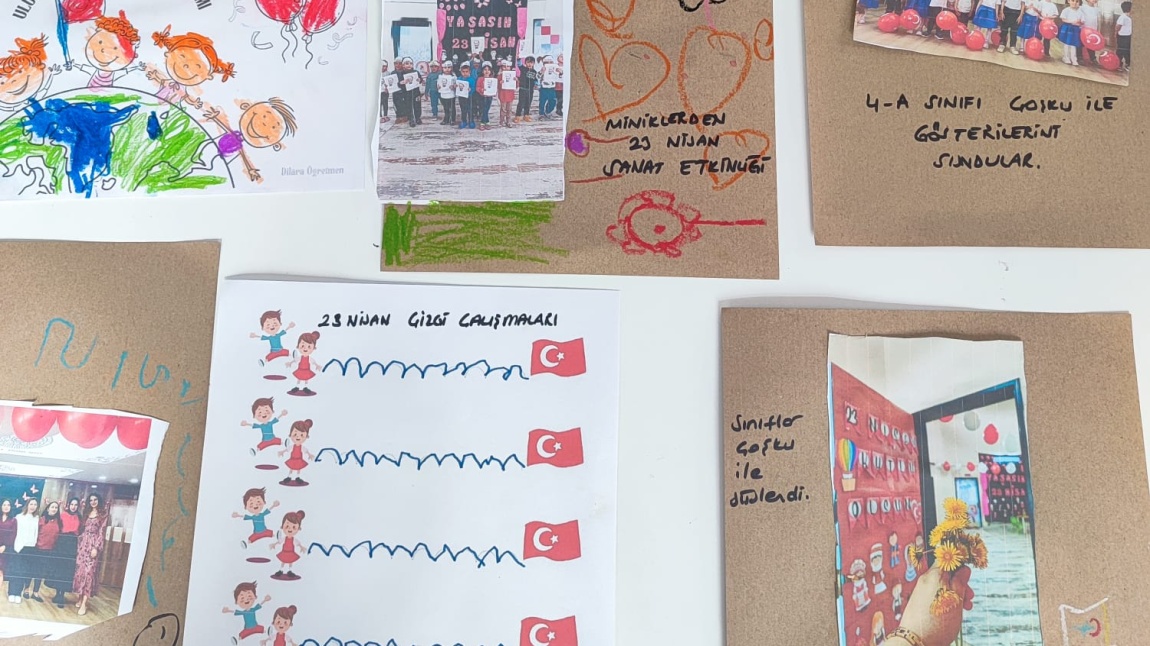 YAŞASIN
23 NİSAN
MİNİKLERDEN
23 NİSAN
SANAT ETKİNLİĞİ
4-A SINIFI COŞKU İLE
GÖSTERİLERİNİ
SUNDULAR.
Dilara Öğretmen
23 NİSAN ÇİZGİ ÇALIŞMALARI
Sınıflar
Coşku
ile
süslendi.
YAŞASIN